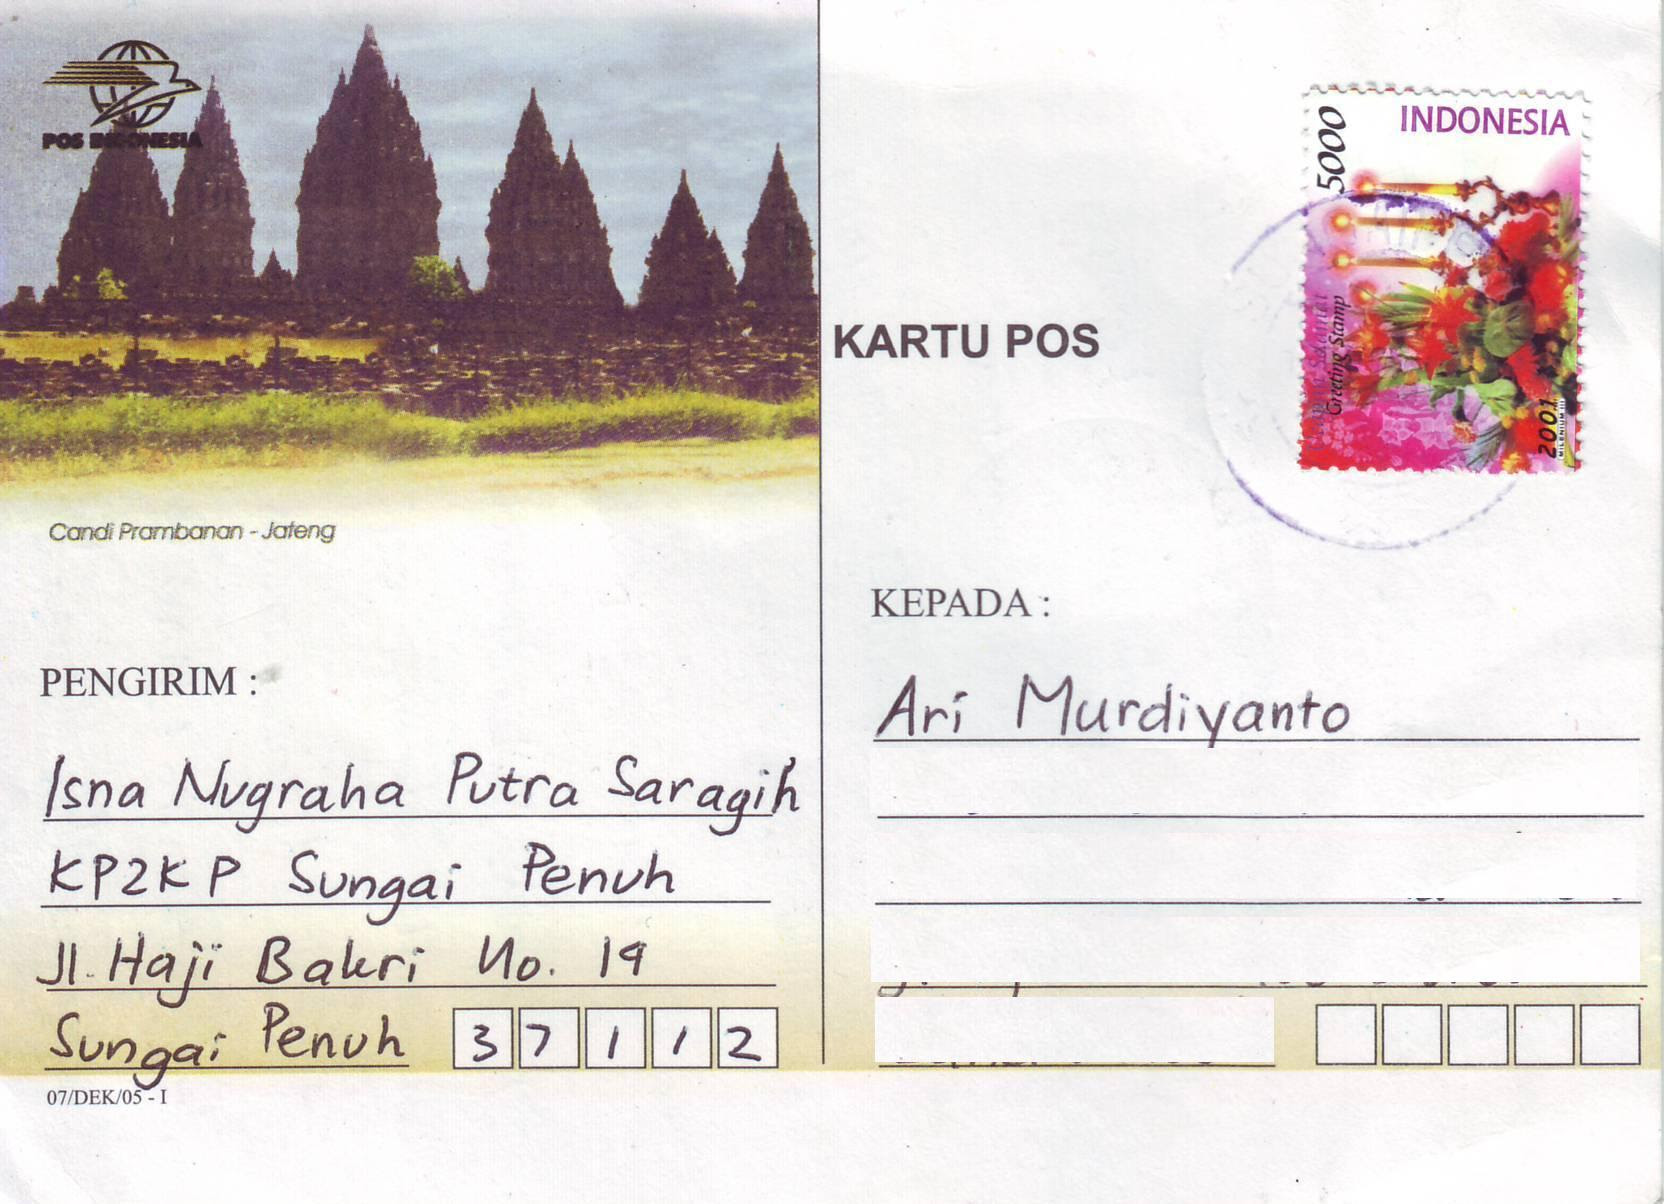 POS INDONESIA
Candi Prambanan - Jateng
PENGIRIM :
Isna Nugraha Putra Saragih
KP2KP Sungai Penuh
Jl. Haji Bakri No. 19
Sungai Penuh 37112
07/DEK/05 - I
INDONESIA
5000
Greeting Stamp
2001
MILENIUM III
KARTU POS
KEPADA :
Ari Murdiyanto